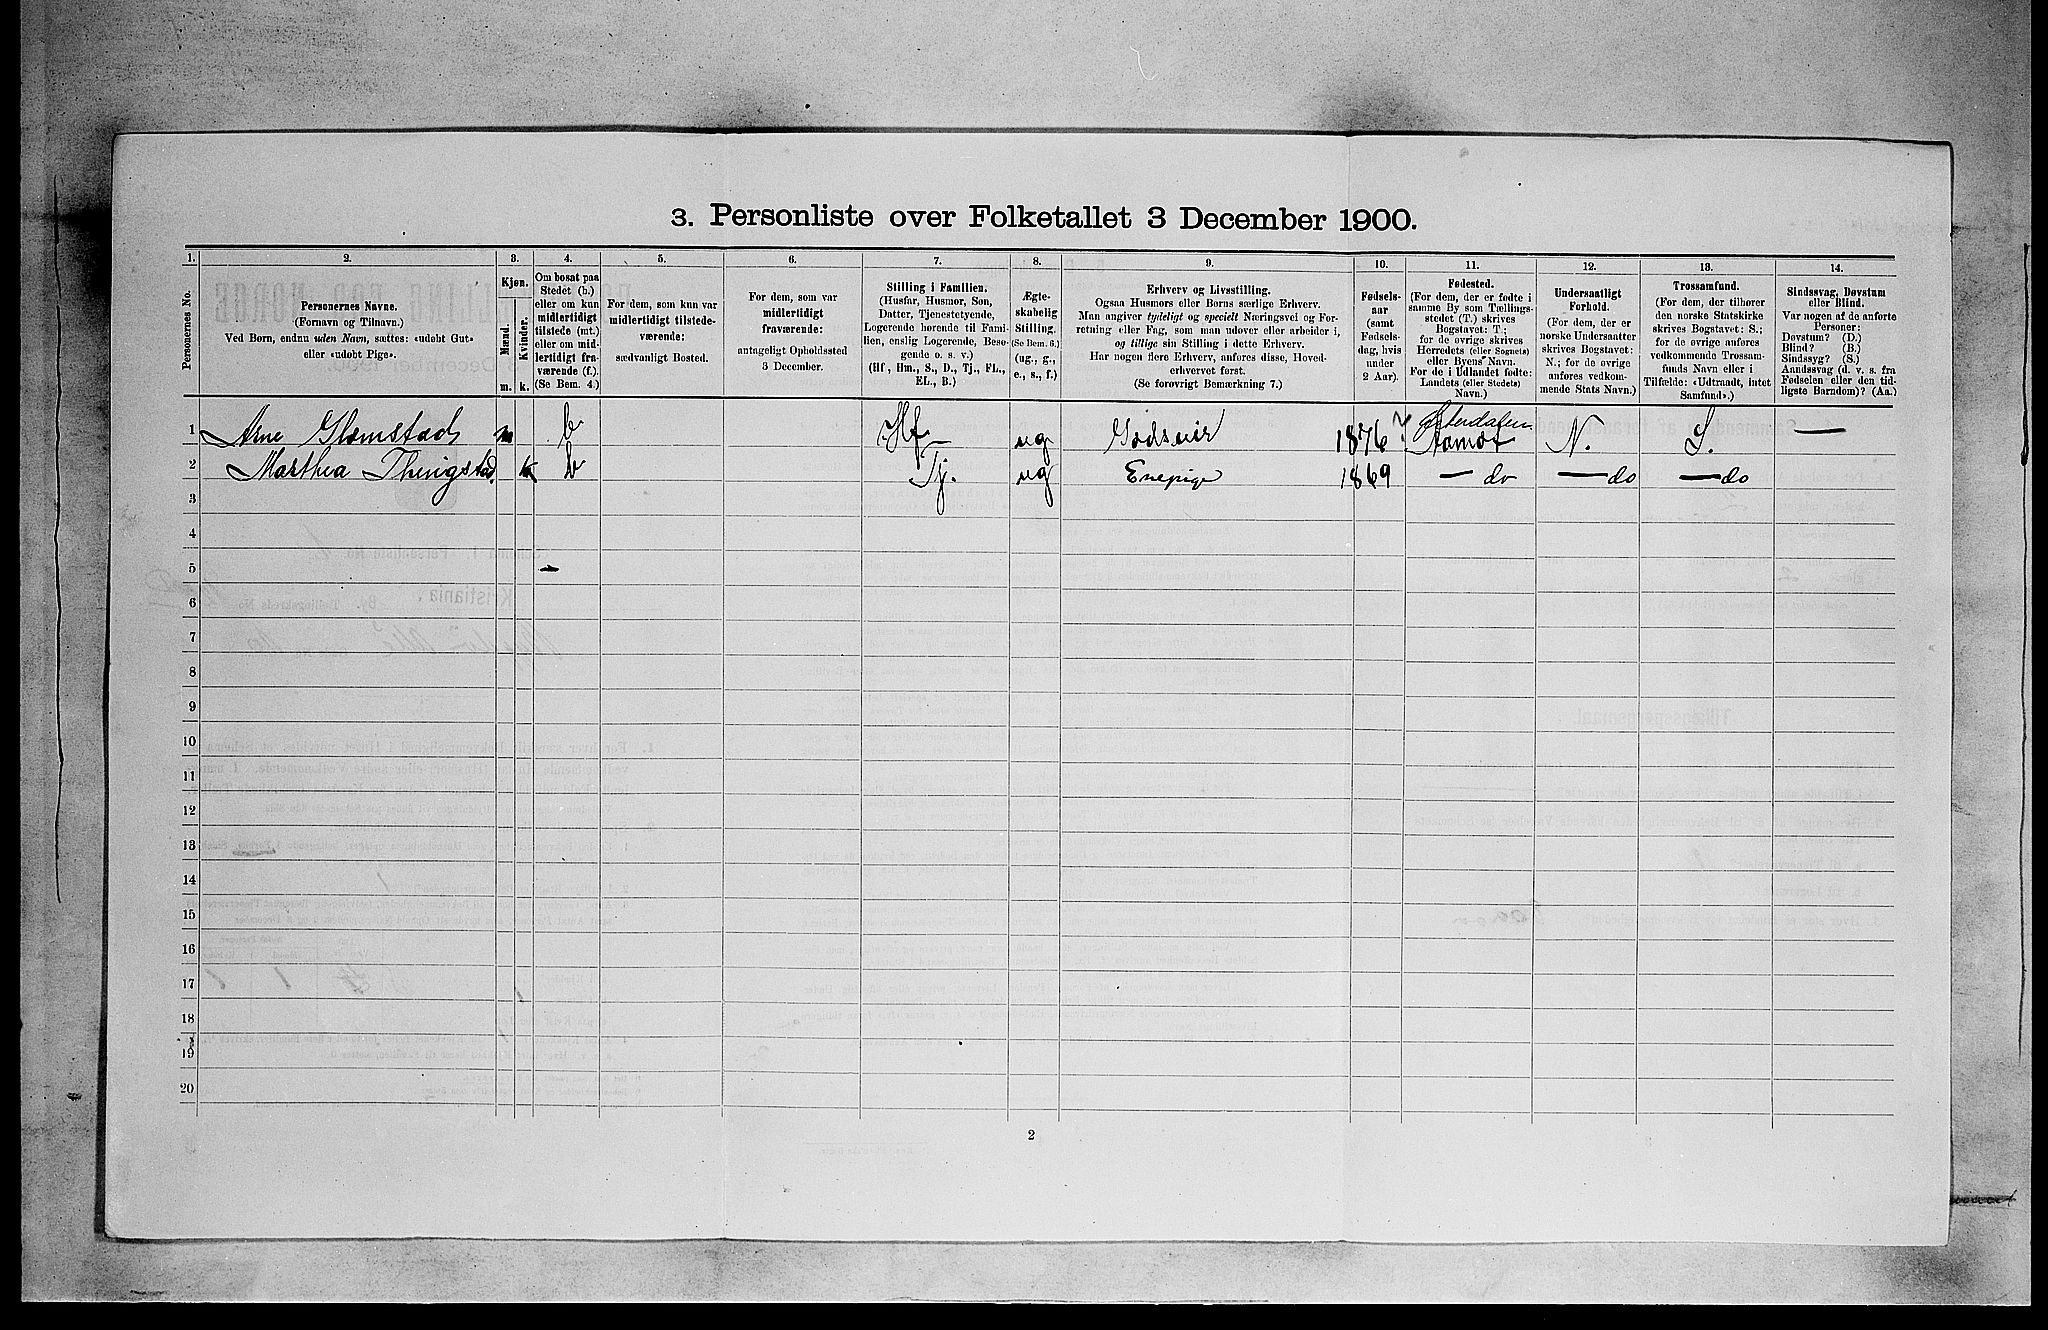 3. Personliste over Folketallet 3 December 1900.
1. 2. 3. 4. 5. 6. 7. 8. 9. 10. 11. 12. 13. 14.
Personernes No.
Personernes Navne.
(Fornavn og Tilnavn.)
Ved Børn, endnu uden Navn, sættes: «udøbt Gut»
eller «udøbt Pige».
Kjøn.
Mænd.
Kvinder.
m. k.
Om bosat paa
Stedet (b.)
eller om kun
midlertidigt
tilstede (mt.)
eller om mid-
lertidigt fra-
værende (f.).
(Se Bem. 4.)
For dem, som kun var
midlertidigt tilstede-
værende:
sædvanligt Bosted.
For dem, som var
midlertidigt
fraværende:
antageligt Opholdssted
3 December.
Stilling i Familien.
(Husfar, Husmor, Søn,
Datter, Tjenestetyende,
Logerende hørende til Fami-
lien, enslig Logerende, Besø-
gende o. s. v.)
(Hf., Hm., S., D., Tj., FL.,
EL., B.)
Ægte-
skabelig
Stilling.
(Se Bem. 6.)
(ug., g.,
e., s., f.)
Erhverv og Livsstilling.
Ogsaa Husmors eller Børns særlige Erhverv.
Man angiver tydeligt og specielt Næringsvei og For-
retning eller Fag, som man udøver eller arbeider i,
og tillige sin Stilling i dette Erhverv.
Har nogen flere Erhverv, anføres disse, Hoved-
erhvervet først.
(Se forøvrigt Bemærkning 7.)
Fødsels-
aar
(samt
Fødsels-
dag, hvis
under
2 Aar).
Fødested.
(For dem, der er fødte i
samme By som Tællings-
stedet (T.) skrives
Bogstavet: T.;
for de øvrige skrives
Herredets (eller Sognets)
eller Byens Navn.
For de i Udlandet fødte:
Landets (eller Stedets)
Navn.)
Undersaatligt
Forhold.
(For dem, der er
norske Undersaatter
skrives Bogstavet:
N.; for de øvrige
anføres vedkom-
mende Stats Navn.)
Trossamfund.
(For dem, der tilhører
den norske Statskirke
skrives Bogstavet: S.;
for de øvrige anføres
vedkommende Trossam-
funds Navn eller i
Tilfælde: «Udtraadt, intet
Samfund».)
Sindssvag, Døvstum
eller Blind.
Var nogen af de anførte
Personer:
Døvstum? (D.)
Blind? (B.)
Sindssyg? (S.)
Aandssvag (d. v. s. fra
Fødselen eller den tid-
ligste Barndom)? (Aa.)
1 Arne Glomstad m b Hf ug Godseier 1876 Østerdalen Aamot N. S. —
2 Marthea Thingstad. k b Tj. ug Enepige 1869 — do — do — do
3
4
5
6
7
8
9
10
11
12
13
14
15
16
17
18
19
20
2